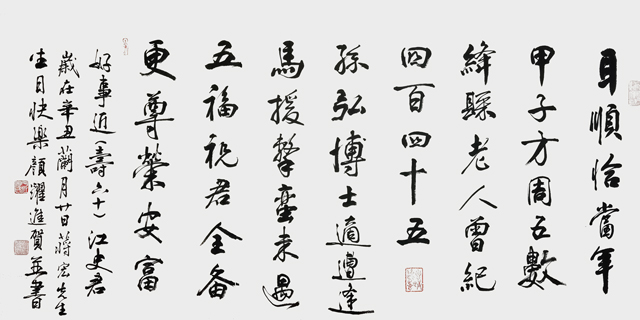 耳順恰當年
甲子方周五數
絳縣老人曾紀
四百四十五
孫弘博士適遭逢
馬援擊蠻未遇
五福祝君全备
更尊榮安富
好事近（壽六十）江史君
歲在辛丑蘭月廿日蔣宏先生
生日快樂顏濯進賀並書